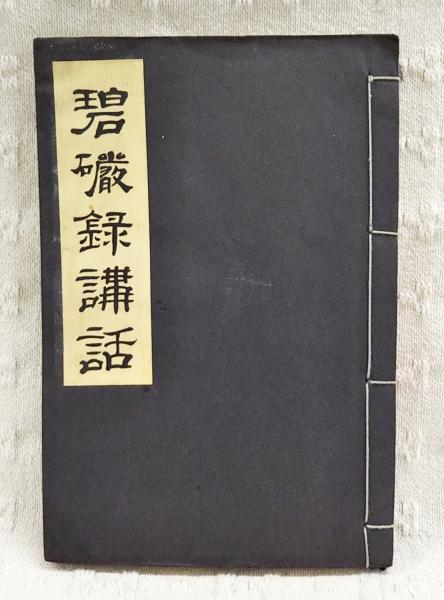 碧礹録講話